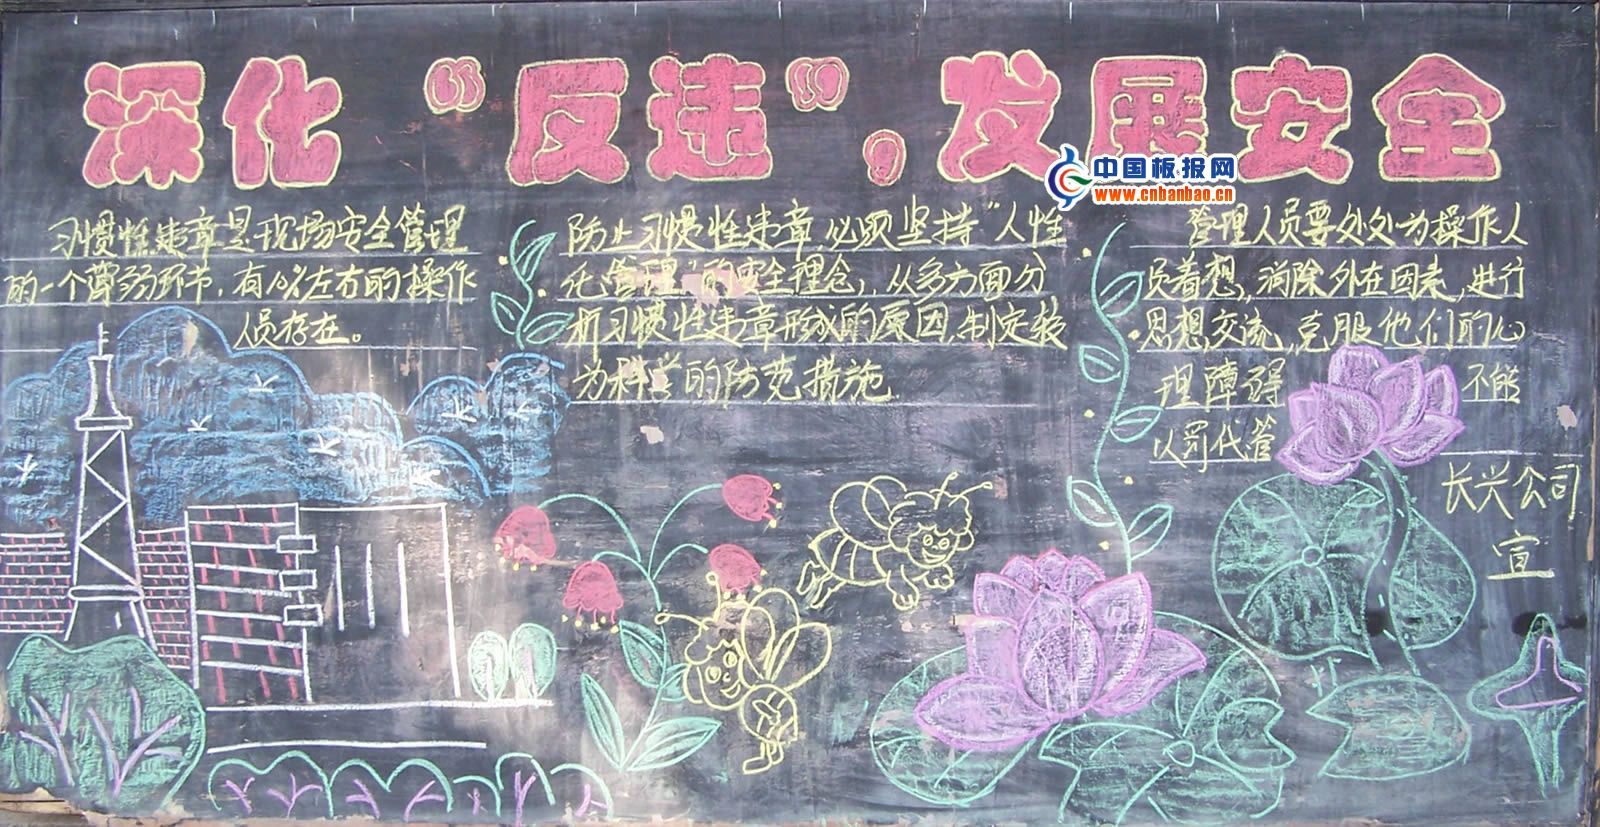 深化“反违”,发展安全
中国板报网
www.cnbanbao.cn
习惯性违章是现场安全管理
的一个薄弱环节,有%左右的操作
人员存在。
防止习惯性违章,必须坚持“人性
化管理”的安全理念,从多方面分
析习惯性违章形成的原因,制定较
为科学的防范措施.
管理人员要处处为操作人
员着想,消除外在因素,进行
思想交流,克服他们的心
理障碍 不能
以罚代管
长兴公司
宣